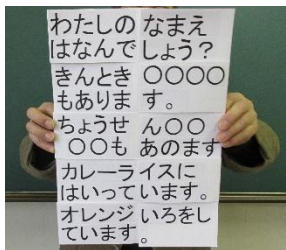 わたしの なまえ
はなんで しょう？
きんとき ○○○○
もありま す。
ちょうせ ん○○
○○も あのます
カレーラ イスに
はいって います。
オレンジ いろをし
ています 。